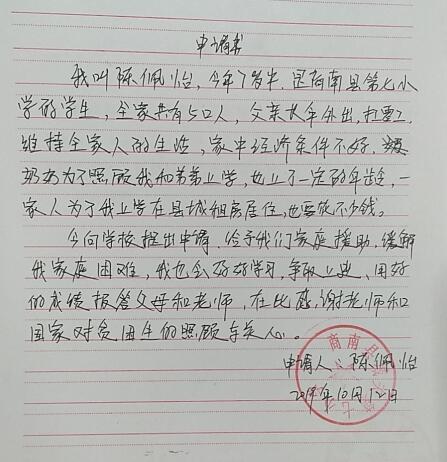 申请书
我叫陈佩怡,今年7岁半.是商南县第七小
学的学生,全家共有5口人,父亲长年外出,打工.
维持全家人的生活,家中经济条件不好.
奶奶为了照顾我和弟弟上学,也上了一定的年龄,一
家人为了我上学在县城租房居住,也要花不少钱。
今向学校提出申请.给予我们家庭援助,缓解
我家庭困难,我也会好好学习,争取上进,用好
的成绩报答父母和老师,在此感谢老师和
国家对贫困生的照顾与关心。
商南县
申请人:陈佩怡
2019年10月12日